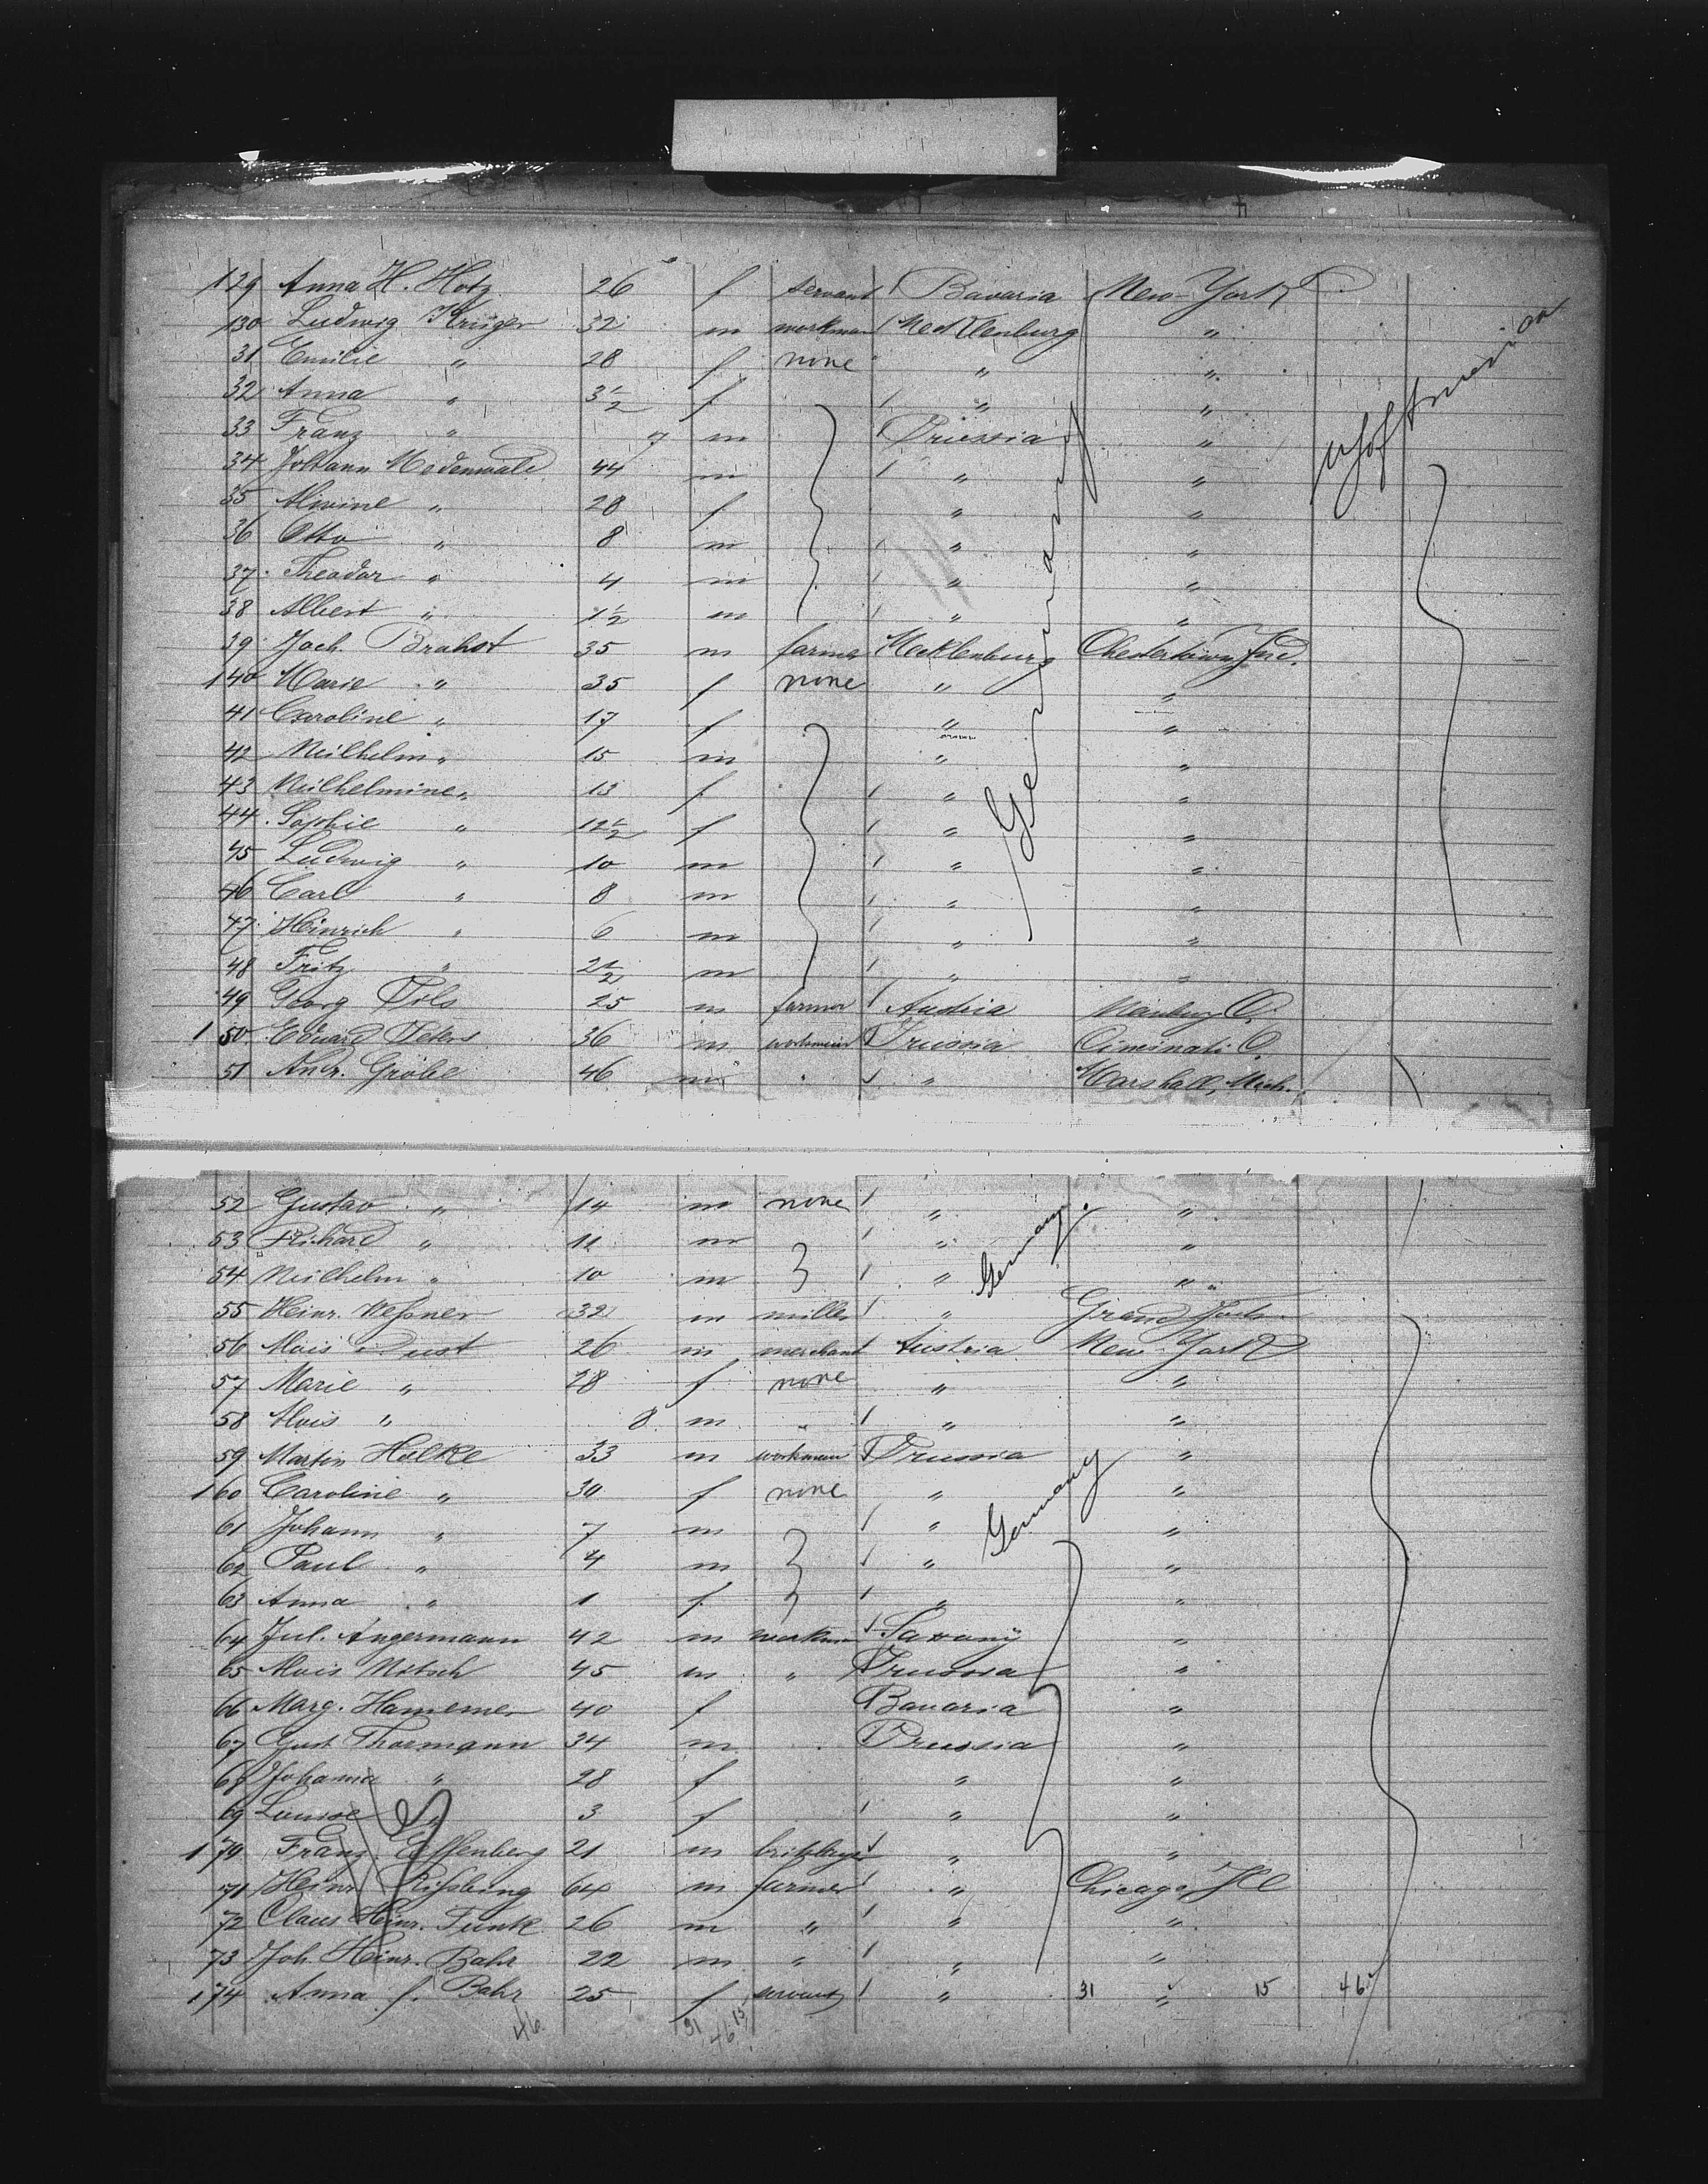 129 Anna H. Hotz 26 f servant Bavaria New-York
130 Ludwig Krüger 32 m workman Mecklenburg "
31 Emilie " 28 f none " "
32 Anna " 3½ f " "
33 Franz " 7 m Prussia "
34 Johann Modenwald 44 m " "
35 Alwine " 28 f " "
36 Otto " 8 m " "
37 Theodor " 4 m " "
38 Albert " 1½ m " "
39 Joch. Brahst 35 m farmer Mecklenburg Chestertown Ind.
140 Marie " 35 f none " "
41 Caroline " 17 f " "
42 Wilhelm " 15 m " "
43 Wilhelmine " 13 f " "
44 Sophie " 12½ f " "
45 Ludwig " 10 m " "
46 Carl " 8 m " "
47 Hinrich " 6 m " "
48 Fritz " 2½ m " "
49 Georg 25 m farmer Austria O.
150 Eduard Peters 36 m workman Prussia Ciminati O.
51 Andr. Gröbe 46 m " " Marshall, Mich.
Germany
52 Gustav " 14 m none " "
53 Richard " 11 m " "
54 Wilhelm " 10 m " "
Germany
55 Heinr. Weßner 32 m miller " Grand
56 Alois Pust 26 m merchant Austria New-York
57 Marie " 28 f none " "
58 Alois " 8 m " " "
59 Martin Hölke 33 m workman Prussia "
160 Caroline " 30 f none " "
61 Johann " 7 m " "
62 Paul " 4 m " "
63 Anna " 1 f " "
Germany
64 Jul. Angermann 42 m workman Saxony "
65 Alois Nitsch 45 m " Prussia "
66 Marg. Hamemer 40 f Bavaria "
67 Gust Thormann 34 m Prussia "
68 Johanna " 28 f " "
69 Louise " 3 f " "
170 Franz Effenberg 21 m " "
71 Heinr. Rißbing 64 m farmer " Chicago, Ill
72 Claus Heinr. Funk 26 m " " "
73 Joh. Heinr. Bahr 22 m " " "
174 Anna f. Bahr 25 f servant " 31 " 15 46
46 31 46 15